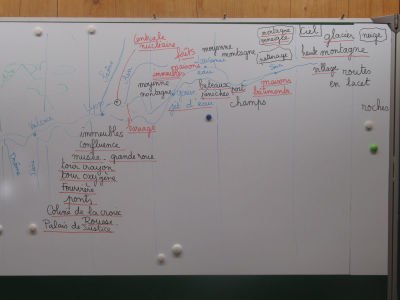 centrale
nucléaire
forêts
maisons
immeubles
moyenne
montagne
moyenne
montagne
montagne
enneigée
patinage
ciel
glacier
neige
haute montagne
village
routes
en lacet
roches
maisons
bâtiments
bateaux
péniches
port
jet d'eau
champs
barrage
immeubles
Confluence
musée - grande roue
tour crayon
tour oxygène
Fourvière
ponts
Colline de la croix
Rousse
Palais de Justice